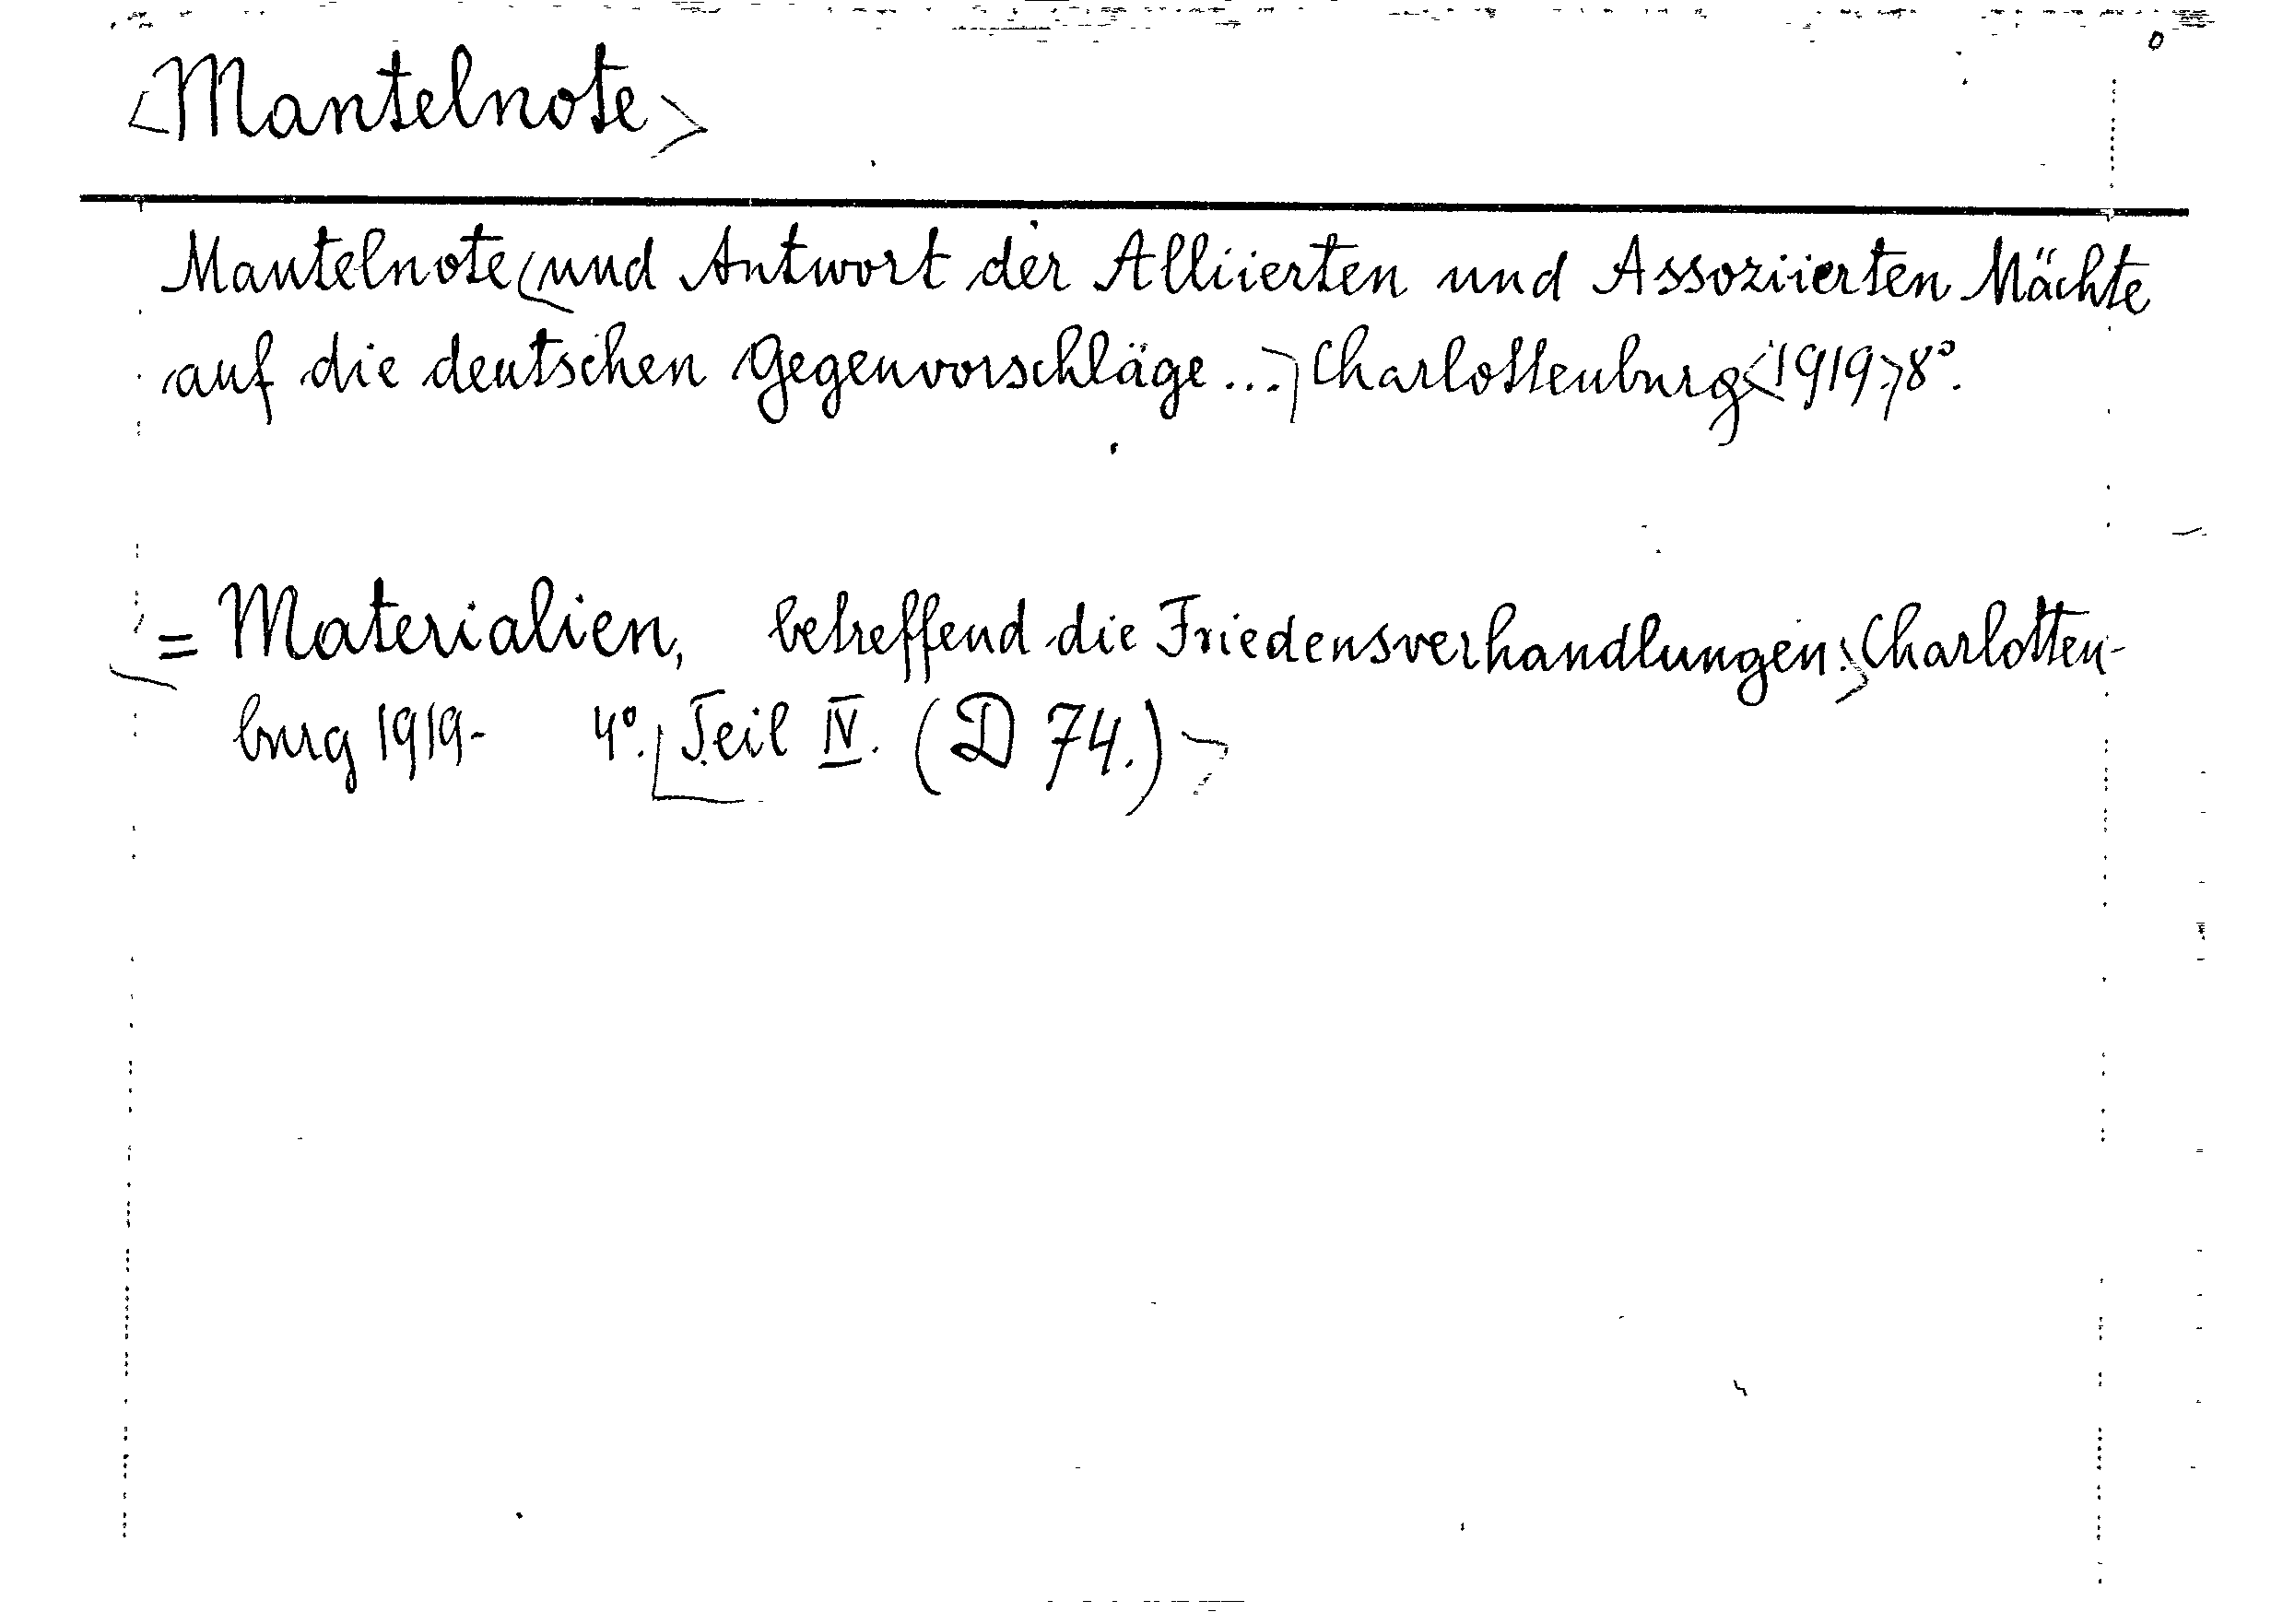 <Mantelnote>
Mantelnote <und Antwort der Alliierten und Assoziierten Mächte
auf die deutschen Gegenvorschläge ...> Charlottenburg <1919.> 8°.
<= Materialien, betreffend die Friedensverhandlungen.> Charlotten-
burg 1919- 4°. <Teil IV. (D 74.)>